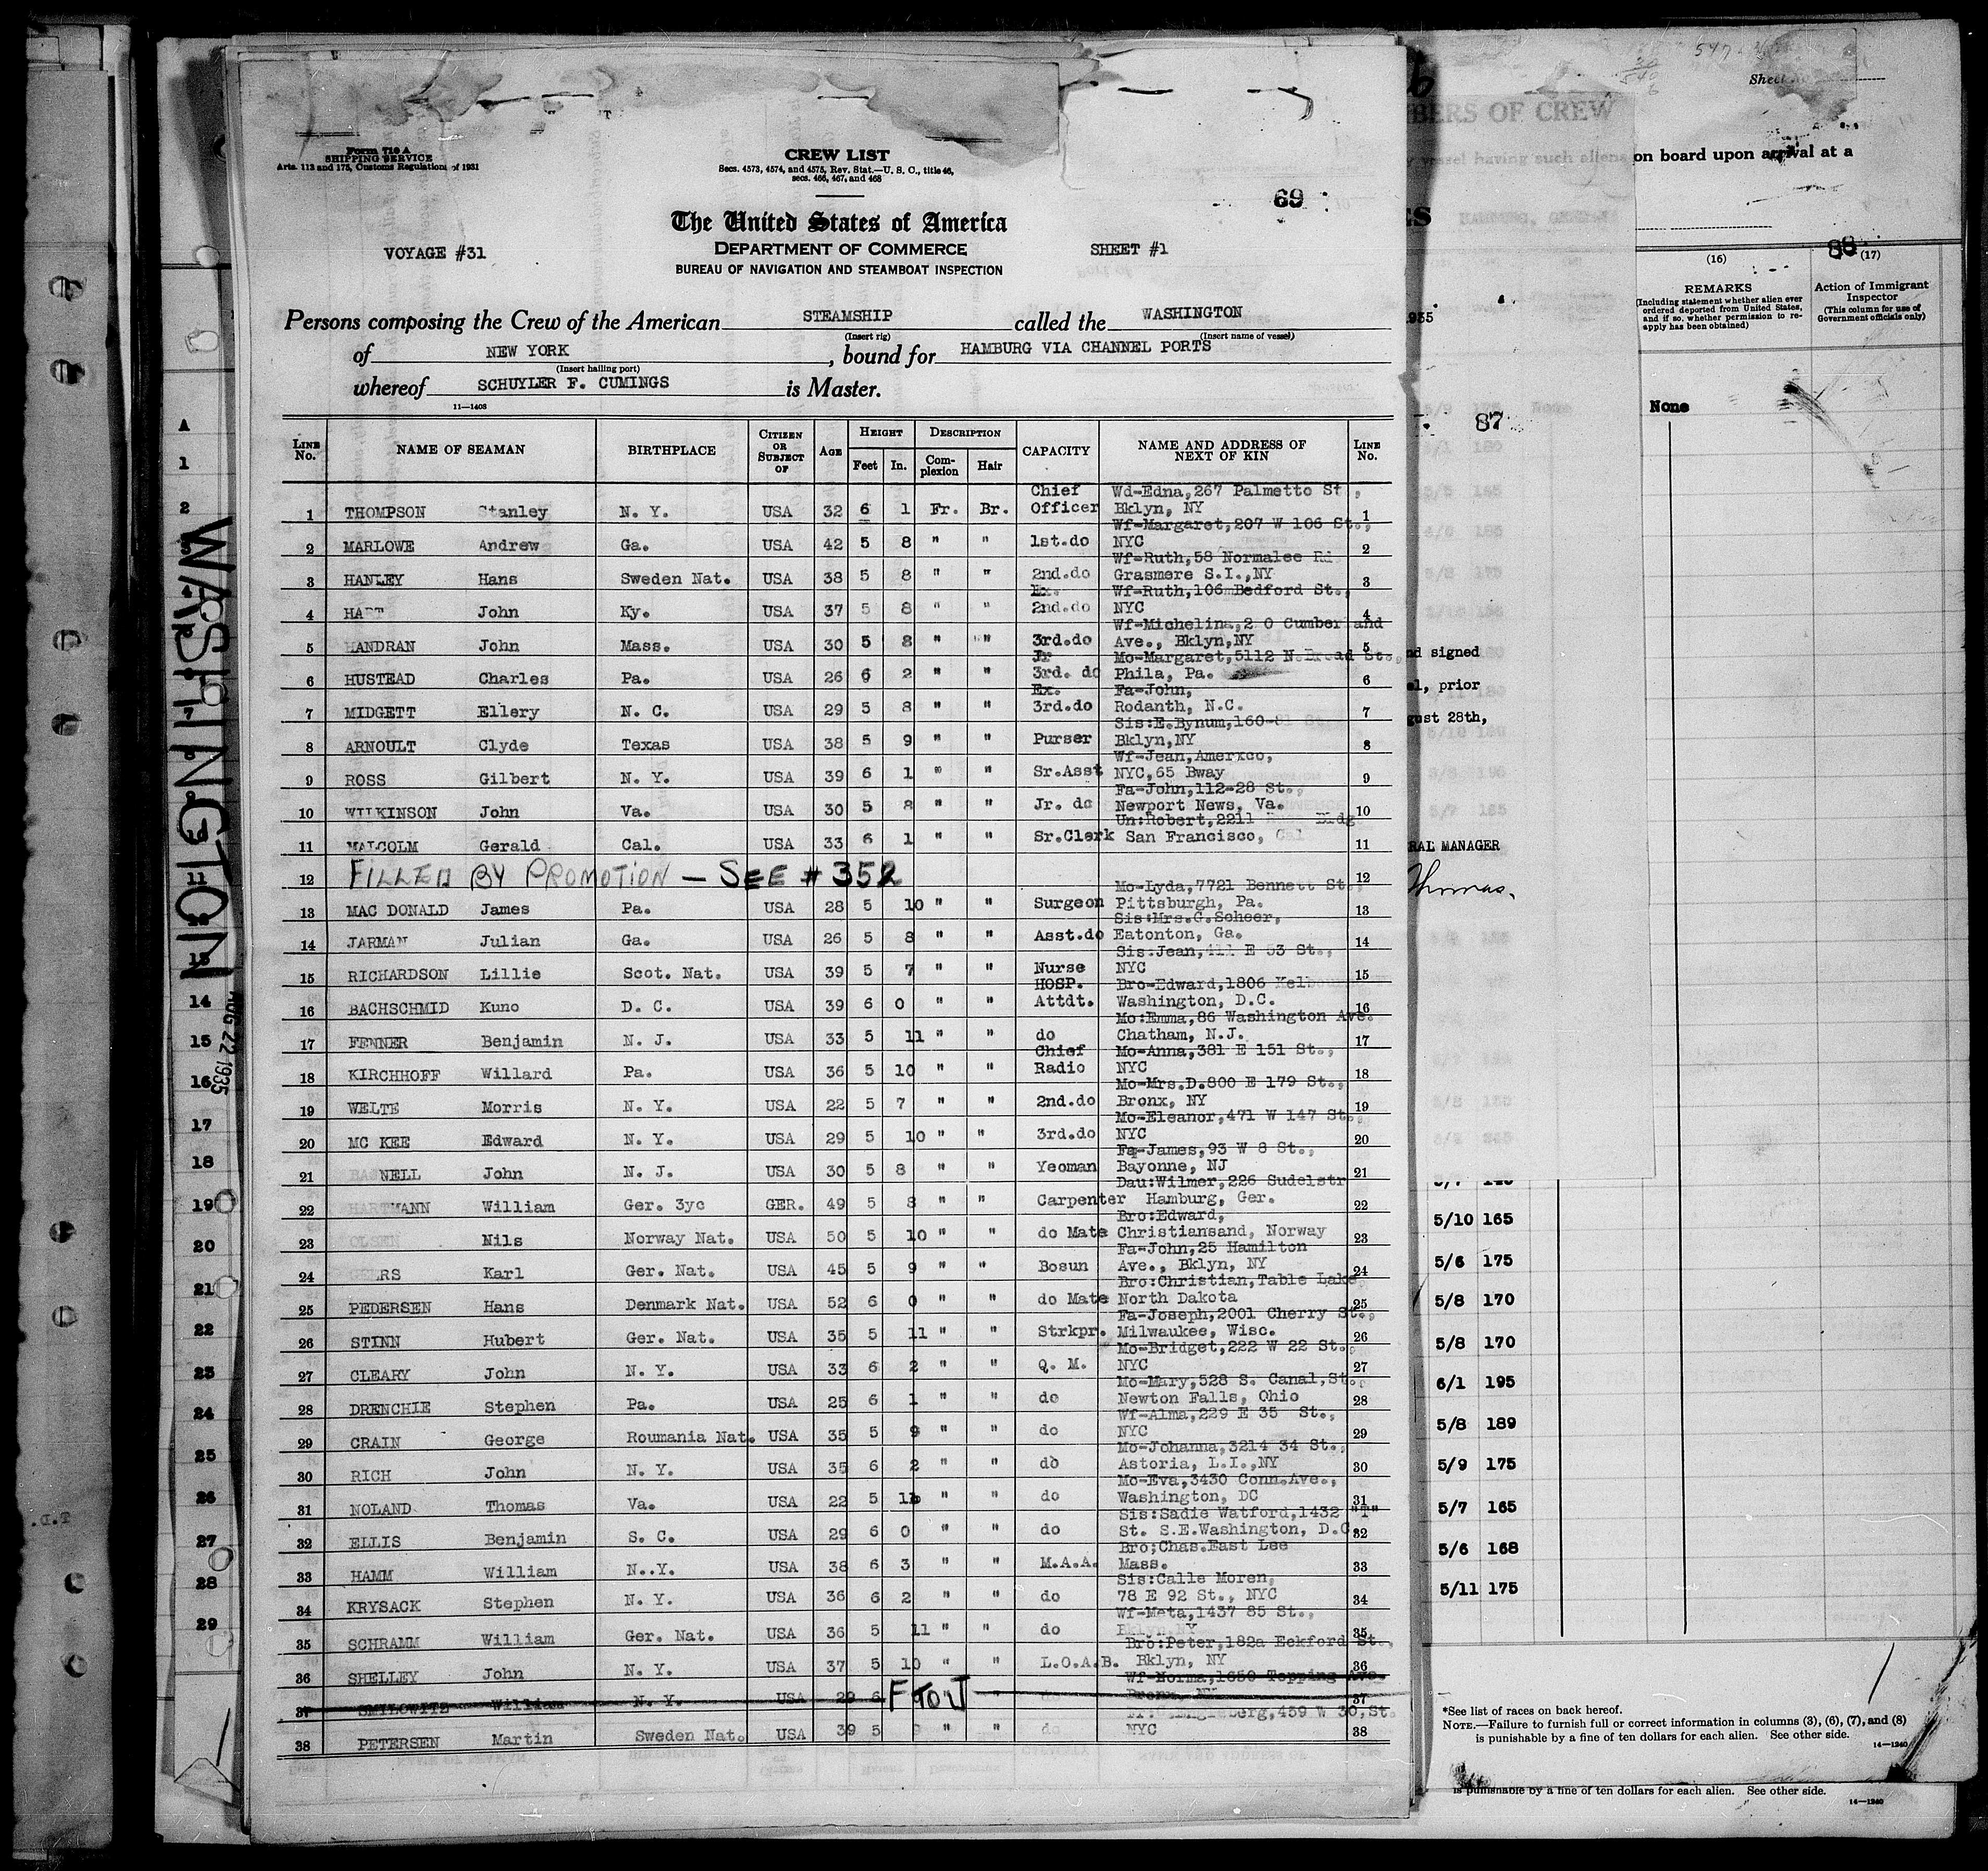 Form 710 A
SHIPPING SERVICE
Arts. 113 and 175, Customs Regulations of 1931
CREW LIST
Secs. 4573, 4574, and 4575, Rev. Stat.—U. S. C., title 46,
secs. 466, 467, and 468
69
The United States of America
VOYAGE #31 DEPARTMENT OF COMMERCE SHEET #1
BUREAU OF NAVIGATION AND STEAMBOAT INSPECTION
Persons composing the Crew of the American STEAMSHIP called the WASHINGTON
(Insert rig) (Insert name of vessel)
of NEW YORK, bound for HAMBURG VIA CHANNEL PORTS
(Insert hailing port)
whereof SCHUYLER F. CUMINGS is Master.
11—1408
LINE No. NAME OF SEAMAN BIRTHPLACE CITIZEN OR SUBJECT OF AGE HEIGHT Feet In. DESCRIPTION Complexion Hair CAPACITY NAME AND ADDRESS OF NEXT OF KIN LINE No.
1 THOMPSON Stanley N. Y. USA 32 6 1 Fr. Br. Chief Officer Wd-Edna,267 Palmetto St, Bklyn, NY 1
2 MARLOWE Andrew Ga. USA 42 5 8 " " 1st.do Wf-Margaret,207 W 106 St., NYC 2
3 HANLEY Hans Sweden Nat. USA 38 5 8 " " 2nd.do Wf-Ruth,58 Normalee Rd Grasmere S.I.,NY 3
4 HART John Ky. USA 37 5 8 " " Ex. 2nd.do Wf-Ruth,106mBedford St., NYC 4
5 HANDRAN John Mass. USA 30 5 8 " " 3rd.do Wf-Michelina,2 0 Cumber and Ave., Bklyn,NY 5
6 HUSTEAD Charles Pa. USA 26 6 2 " " Jr 3rd. do Mo-Margaret,5112 N.Broad St., Phila, Pa. 6
7 MIDGETT Ellery N. C. USA 29 5 8 " " Ex. 3rd.do Fa-John, Rodanth, N.C. 7
8 ARNOULT Clyde Texas USA 38 5 9 " " Purser Sis:E.Bynum,160- Bklyn,NY 8
9 ROSS Gilbert N. Y. USA 39 6 1 " " Sr.Asst Wf-Jean,Amerxco, NYC,65 Bway 9
10 WILKINSON John Va. USA 30 5 8 " " Jr. do Fa-John,112-28 St., Newport News, Va. 10
11 MALCOLM Gerald Cal. USA 33 6 1 " " Sr.Clerk Un:Robert,2211 Bldg San Francisco, Cal 11
12 FILLED BY PROMOTION — SEE #352 12
13 MAC DONALD James Pa. USA 28 5 10 " " Surgeon Mo-Lyda,7721 Bennett St., Pittsburgh, Pa. 13
14 JARMAN Julian Ga. USA 26 5 8 " " Asst.do Sis:Mrs.G.Scheer, Eatonton, Ga. 14
15 RICHARDSON Lillie Scot. Nat. USA 39 5 7 " " Nurse Sis:Jean,411 E 53 St., NYC 15
16 BACHSCHMID Kuno D. C. USA 39 6 0 " " HOSP. Attdt. Bro-Edward,1806 Washington, D.C. 16
17 FENNER Benjamin N. J. USA 33 5 11 " " do Mo:Emma,86 Washington Ave. Chatham, N.J. 17
18 KIRCHHOFF Willard Pa. USA 36 5 10 " " Chief Radio Mo-Anna,381 E 151 St., NYC 18
19 WELTE Morris N. Y. USA 22 5 7 " " 2nd.do Mo-Mrs.D.800 E 179 St., Bronx, NY 19
20 MC KEE Edward N. Y. USA 29 5 10 " " 3rd.do Mo-Eleanor,471 W 147 St., NYC 20
21 NELL John N. J. USA 30 5 8 " " Yeoman Fa-James,93 W 8 St., Bayonne, NJ 21
22 HARTMANN William Ger. 3yc GER. 49 5 8 " " Carpenter Dau:Wilmer,226 Sudelstr Hamburg, Ger. 22
23 OLSEN Nils Norway Nat. USA 50 5 10 " " do Mate Bro:Edward, Christiansand, Norway 23
24 RS Karl Ger. Nat. USA 45 5 9 " " Bosun Fa-John,25 Hamilton Ave., Bklyn, NY 24
25 PEDERSEN Hans Denmark Nat. USA 52 6 0 " " do Mate Bro:Christian,Table Lake North Dakota 25
26 STINN Hubert Ger. Nat. USA 35 5 11 " " Strkpr. Fa-Joseph,2001 Cherry St., Milwaukee, Wisc. 26
27 CLEARY John N. Y. USA 33 6 2 " " Q. M. Mo-Bridget,222 W 22 St. NYC 27
28 DRENCHIE Stephen Pa. USA 25 6 1 " " do Mo-Mary,528 S. Canal,St., Newton Falls, Ohio 28
29 CRAIN George Roumania Nat. USA 35 5 9 " " do Wf-Alma,229 E 35 St., NYC 29
30 RICH John N. Y. USA 35 6 2 " " do Mo-Johanna,3214 34 St., Astoria, L.I.,NY 30
31 NOLAND Thomas Va. USA 22 5 11 " " do Mo-Eva,3430 Conn.Ave., Washington, DC 31
32 ELLIS Benjamin S. C. USA 29 6 0 " " do Sis:Sadie Watford,1432 "T" St. S.E.Washington, D.C. 32
33 HAMM William N..Y. USA 38 6 3 " " M.A.A. Bro;Chas.East Lee Mass. 33
34 KRYSACK Stephen N. Y. USA 36 6 2 " " do Sis:Calle Moren, 78 E 92 St., NYC 34
35 SCHRAMM William Ger. Nat. USA 36 5 11 " " do Wf-Meta,1437 85 St., Bklyn,NY 35
36 SHELLEY John N. Y. USA 37 5 10 " " L.O.A.B. Bro:Peter,182a Eckford St., Bklyn, NY 36
37 SMILOWITZ William N. Y. USA 29 6 Wf-Norma,1650 Topping Ave. Bronx, NY 37
38 PETERSEN Martin Sweden Nat. USA 39 5 9 " " do berg,459 W 30,St. NYC 38
WASHINGTON
AUG 22 1935
A
1
2
7
11
14
15
16
17
18
19
20
21
22
23
24
25
26
27
28
29
Sheet
BERS OF CREW
vessel having such aliens
on board upon arrival at a
88
(16) (17)
REMARKS
(Including statement whether alien ever ordered deported from United States, and if so, whether permission to reapply has been obtained)
Action of Immigrant Inspector
(This column for use of Government officials only)
1935
None
87
nd signed
el, prior
gust 28th,
RAL MANAGER
Thomas.
5/10 165
5/6 175
5/8 170
5/8 170
6/1 195
5/8 189
5/9 175
5/7 165
5/6 168
5/11 175
*See list of races on back hereof.
NOTE.—Failure to furnish full or correct information in columns (3), (6), (7), and (8)
is punishable by a fine of ten dollars for each alien. See other side.
14—1240
is punishable by a fine of ten dollars for each alien. See other side.
14—1240